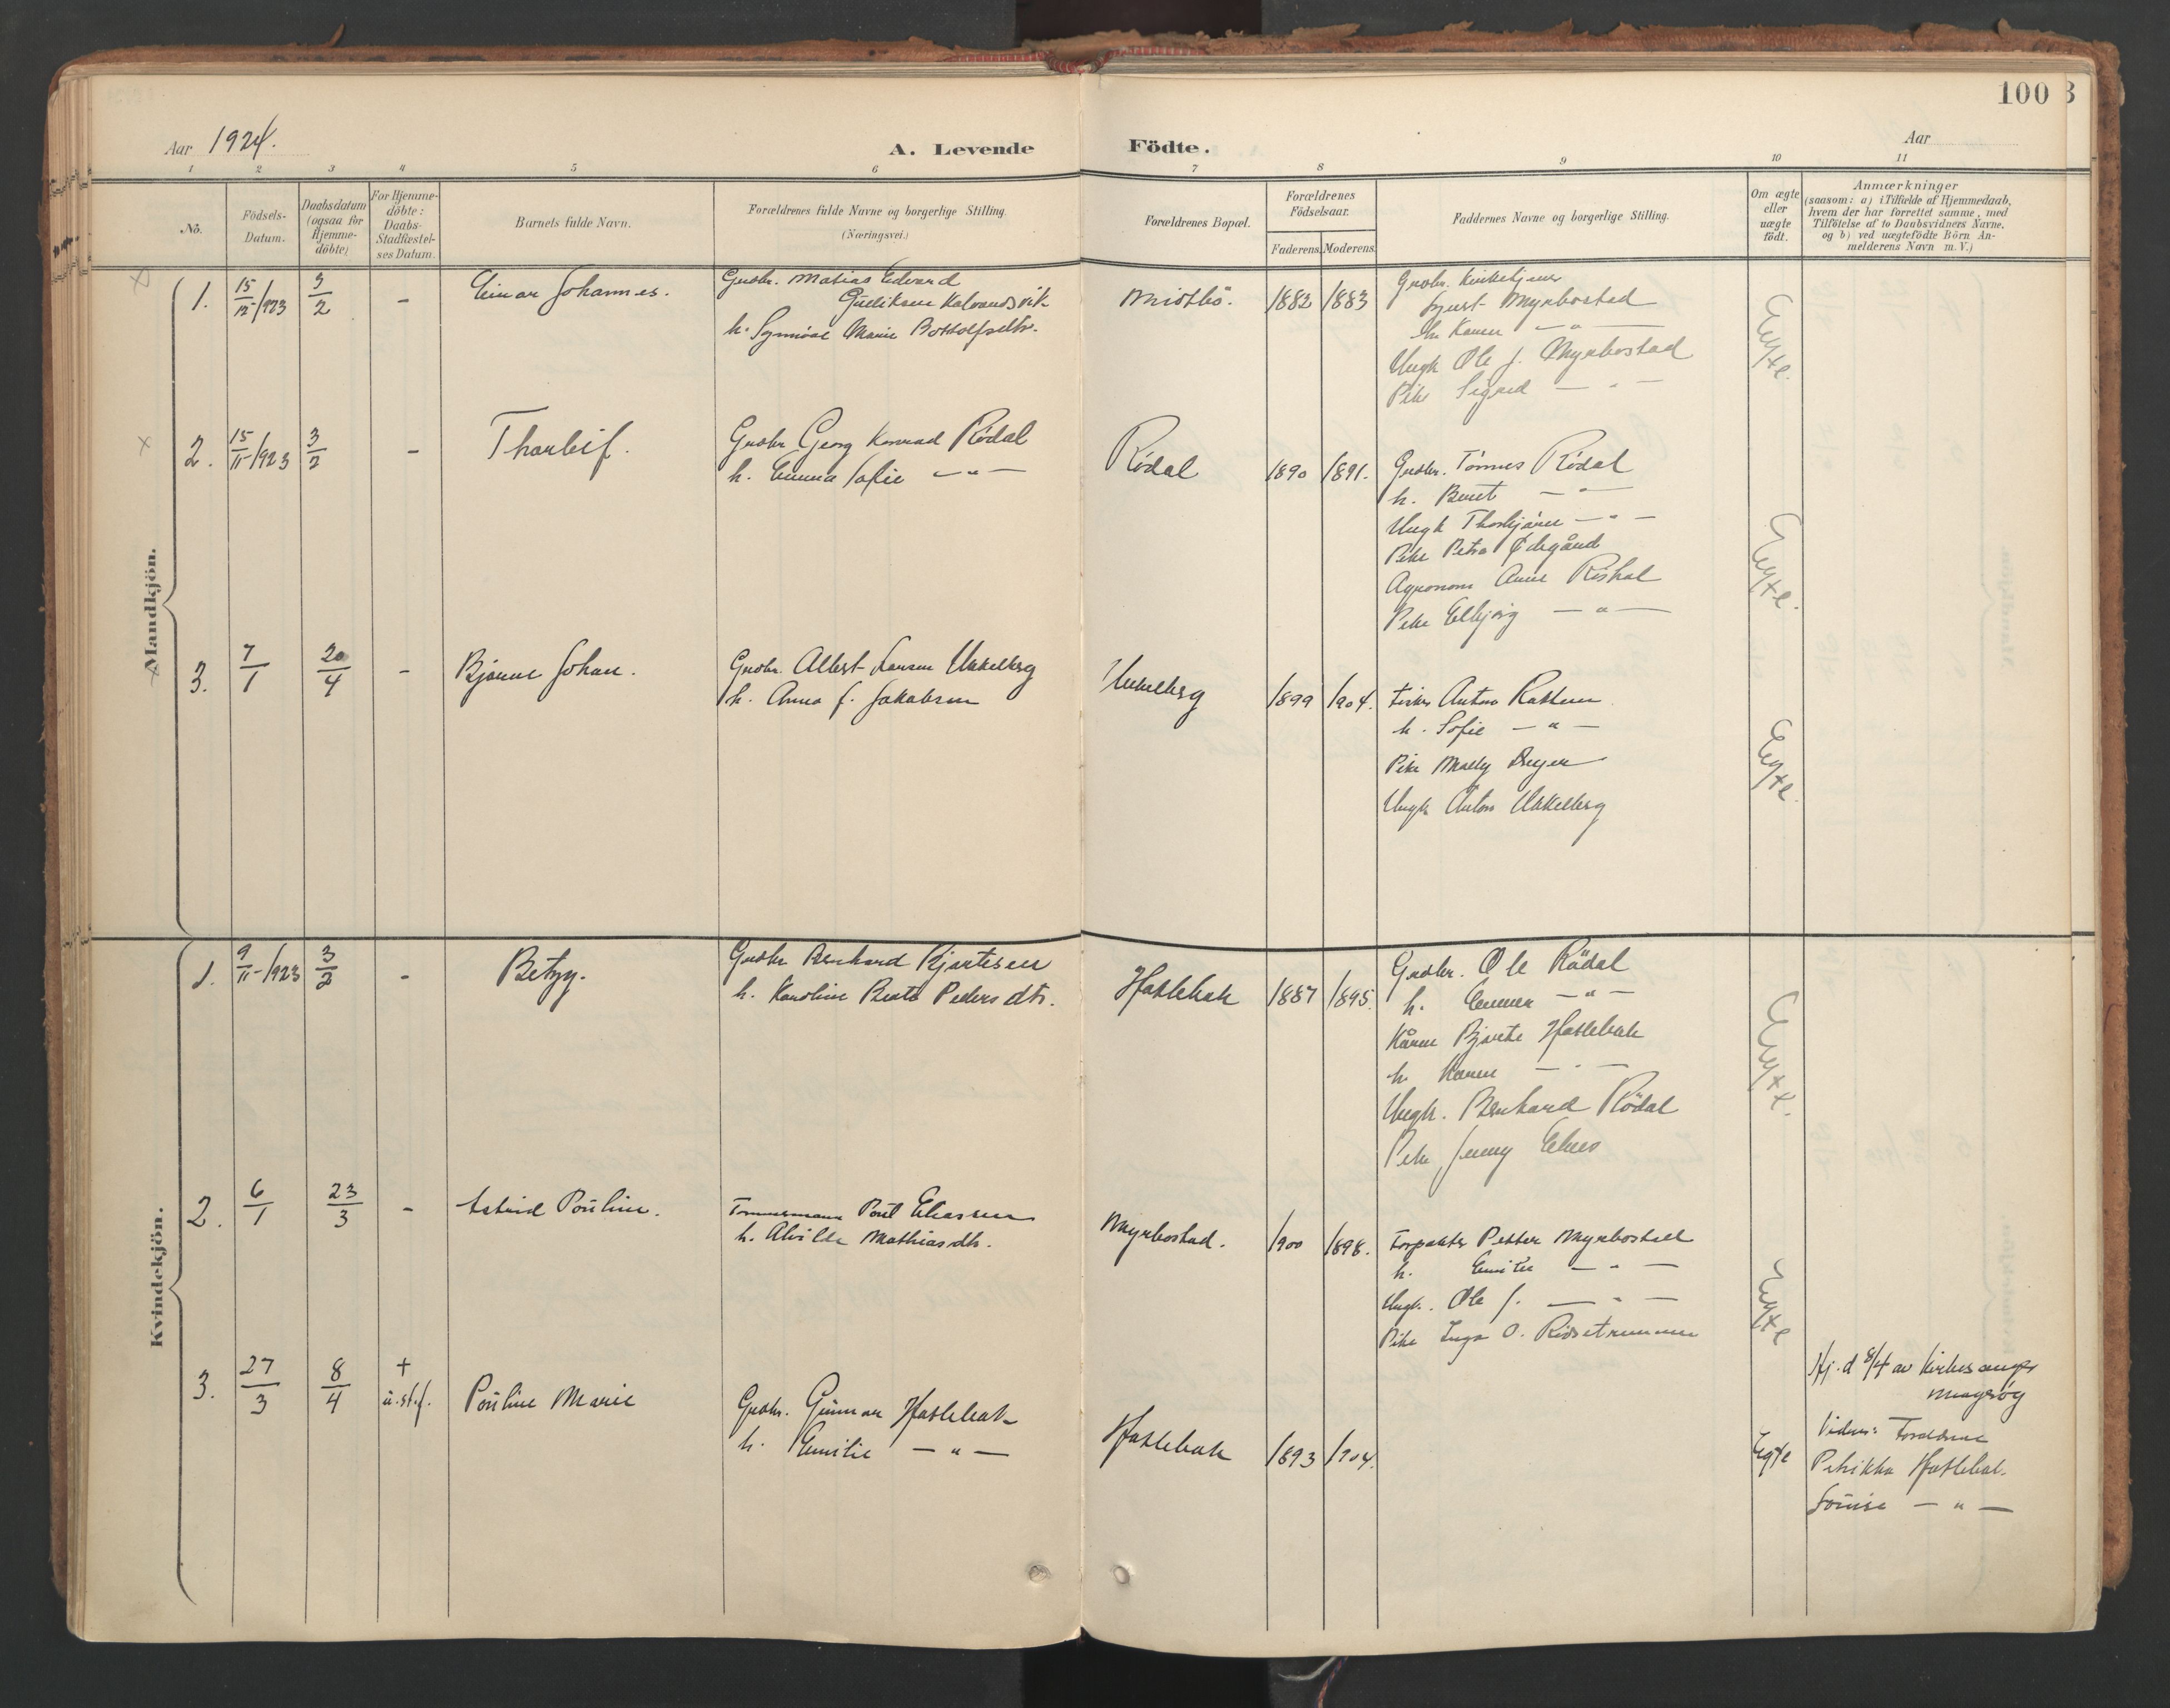 100 3
Aar 1924.
A. Levende Födte.
Aar
1 2 3 4 5 6 7 8 9 10 11
Nö.
Födsels-
Datum.
Daabsdatum
(ogsaa for
Hjemme-
döbte)
For Hjemme-
döbte:
Daabs-
Stadfæstel-
ses Datum.
Barnets fulde Navn.
Forældrenes fulde Navne og borgerlige Stilling.
(Næringsvei.)
Forældrenes Bopæl.
Forældrenes
Födselsaar.
Faderens. Moderens.
Faddernes Navne og borgerlige Stilling.
Om ægte
eller
uægte
födt.
Anmærkninger
(saasom: a) i Tilfælde af Hjemmedaab,
hvem der har forrettet samme, med
Tilföielse af to Daabsvidners Navne,
og b) ved uægtefödte Börn An-
melderens Navn m. V.)
Mandkjön.
1. 15/12-1923 3/2 - Einar Johannes.
Gnobr. Matias Edvard
h. Marie
1882 1883
Gnobr.
Myrbostad
h. Karen — " —
Ungk Ole J. Myrbostad
Pike Sigrid — " —
Egte.
2. 15/11-1923 3/2 - Thorleif.
Gnobr Georg Konrad Rödal
h. Emma Sofie — " —
Rödal 1890 1891.
Gnobr. Tönnes Rödal
h. Beret — " —
Ungk Thorbjörn — " —
Pike Petra Ödegård
Agronom
Pike — " —
Egte.
3. 7/1 20/4 - Bjarne Johan.
Gnobr. Albert Larsen Ukkelberg
h. Anna J. Jakobsen
Ukkelberg 1899 1904.
Fisker Anton
h. Sofie — " —
Pike
Ungk Anton Ukkelberg
Egte.
Kvindekjön.
1. 9/11-1923 3/2 - Betzy.
Gnobr Bernhard Bjartesen
h. Karoline Beate Pedersdtr.
Haslebak 1887 1895.
Gnobr. Ole Rödal
h. Emma — " —
Kårm Bjarte Haslebak
h. Karen — " —
Ungk. Bernhard Rödal
Pike Jenny Elnes
Egte.
2. 6/1 23/3 - Astrid Pouline.
Tømmermann Poul Eliassen
h. Alvilde Mathiasdtr.
Myrbostad. 1900 1898.
Forpakter Petter Myrbostad
h. Emilie — " —
Ungk. Ole J. — " —
Pike Inga O.
Egte
3. 27/3 8/4 + u.st.f. Pouline Marie
Gnobr. Gunnar Haslebak
h. Emilie — " —
Haslebak 1893 1904.
Egte
Hj. d 8/4 av Kirkesanger
Magerøy
Vidner: Forældrene
Petrikka Haslebak.
Louise — " —